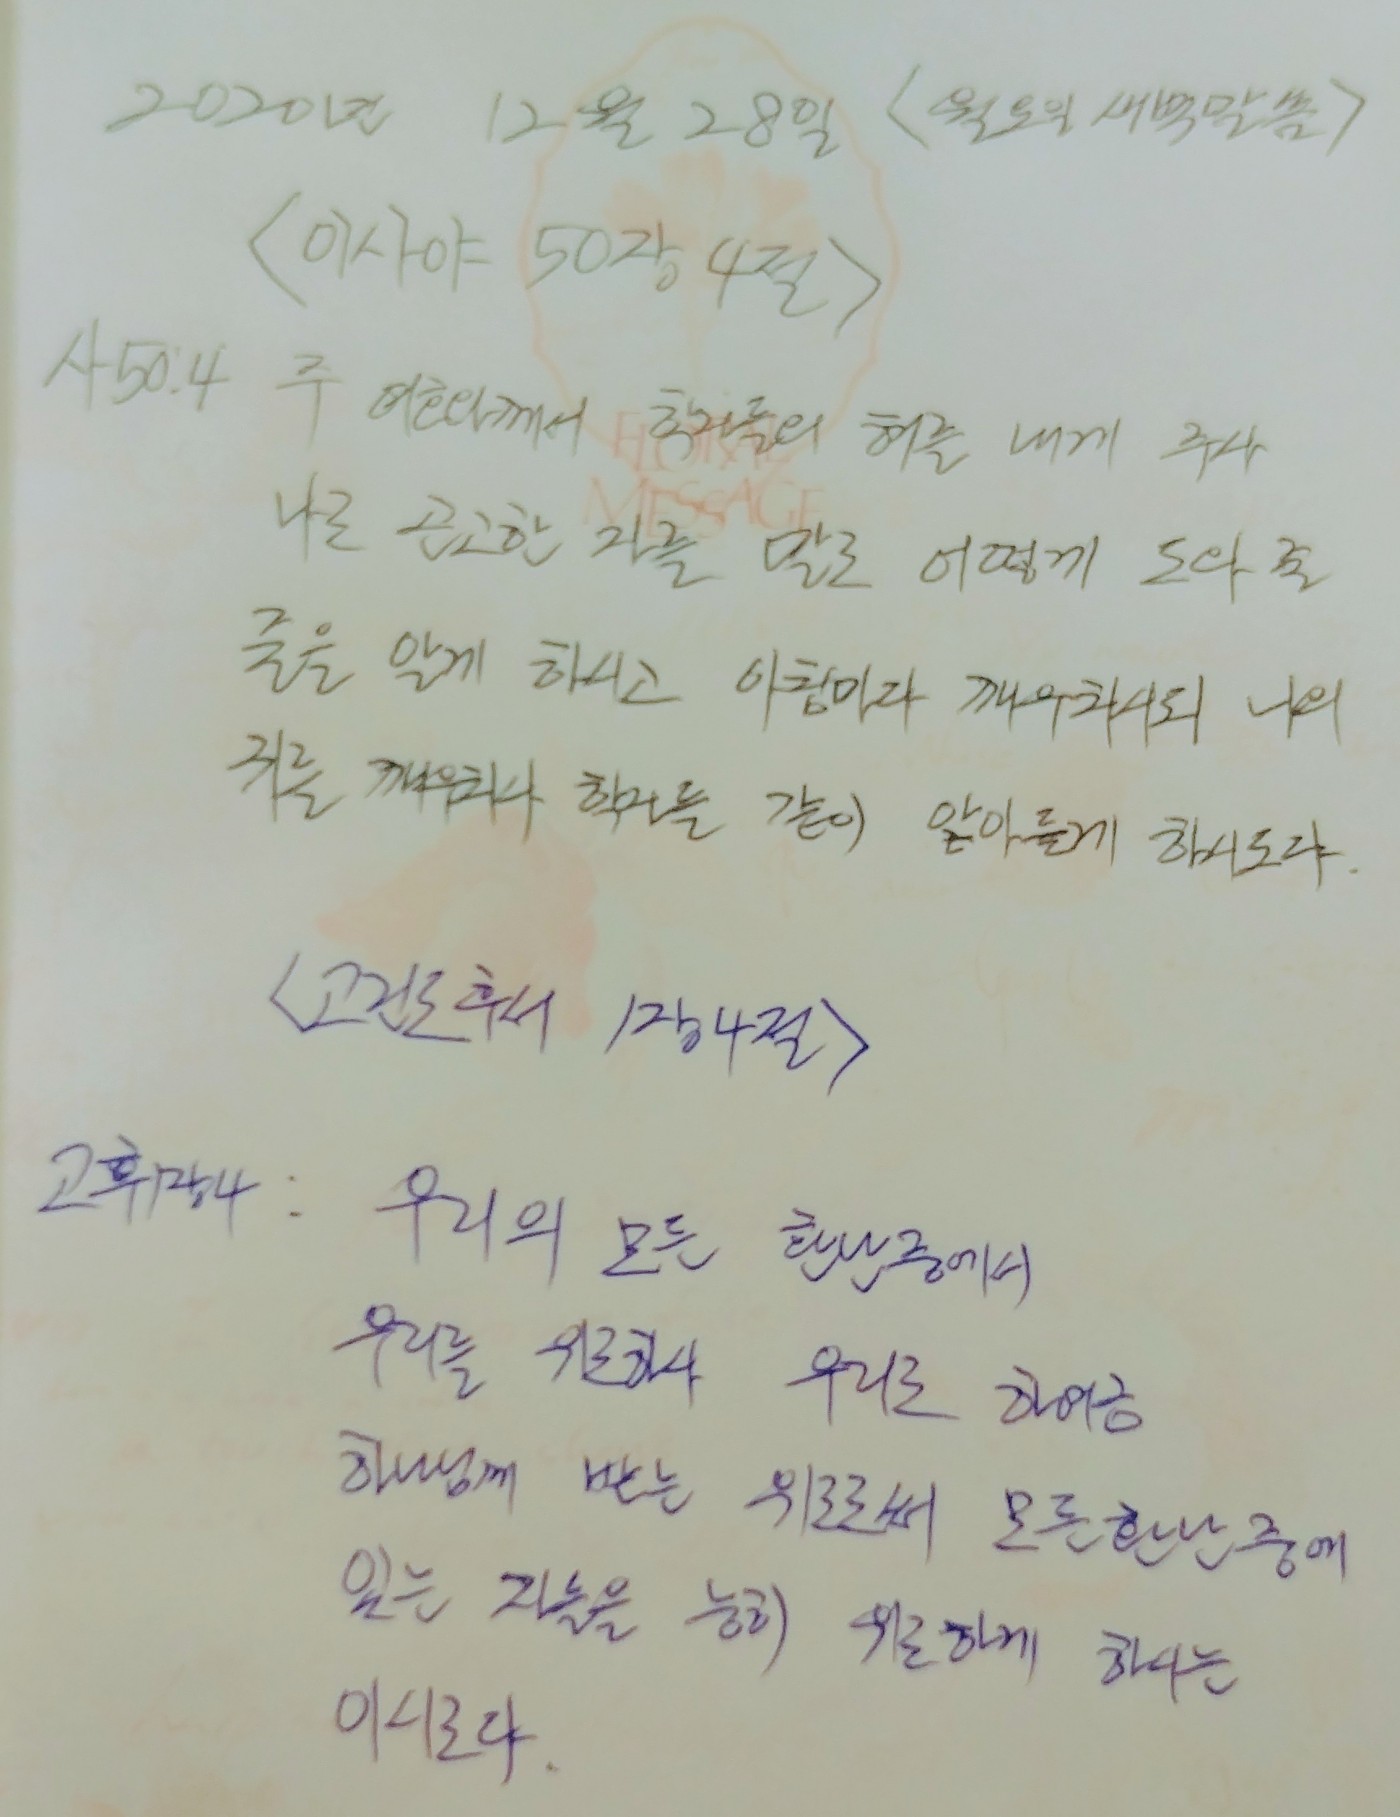 2020년 12월 28일 <월요일 새벽말씀>
<이사야 50장 4절>
사50:4 주 여호와께서 학자들의 혀를 내게 주사
나로 곤고한 자를 말로 어떻게 도와 줄
줄을 알게 하시고 아침마다 깨우치시되 나의
귀를 깨우치사 학자들 같이 알아듣게 하시도다.
FLORAL
MESSAGE
<고린도후서 1장4절>
고후1장4 : 우리의 모든 환난중에서
우리를 위로하사 우리로 하여금
하나님께 받는 위로로써 모든환난중에
있는 자들을 능히 위로하게 하시는
이시로다.